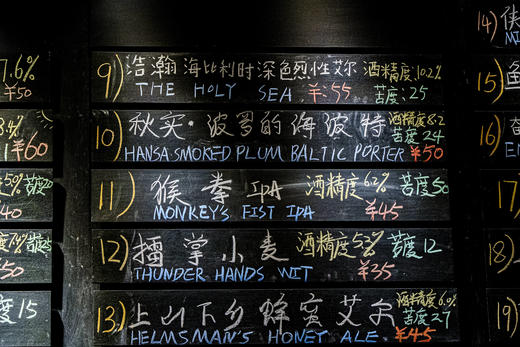 7.6%
¥50
¥60
50% 苦度20
40
苦度25
50
苦度15
9) 浩瀚 海比利时深色烈性艾尔 酒精度:10.2%
THE HOLY SEA ¥:55 苦度:25
10) 秋实·波罗的海波特 酒精度8.2
苦度24
HANSA SMOKED PLUM BALTIC PORTER ¥50
11) 猴拳 IPA 酒精度6.2% 苦度50
MONKEY'S FIST IPA ¥45
12) 擂掌小麦 酒精度5.2% 苦度12
THUNDER HANDS WIT ¥35
13) 上山下乡 蜂蜜艾尔 酒精度6.0%
苦度27
HELMSMAN'S HONEY ALE. ¥45
14) 侠
15) 鱼
16)
17)
18)
19)